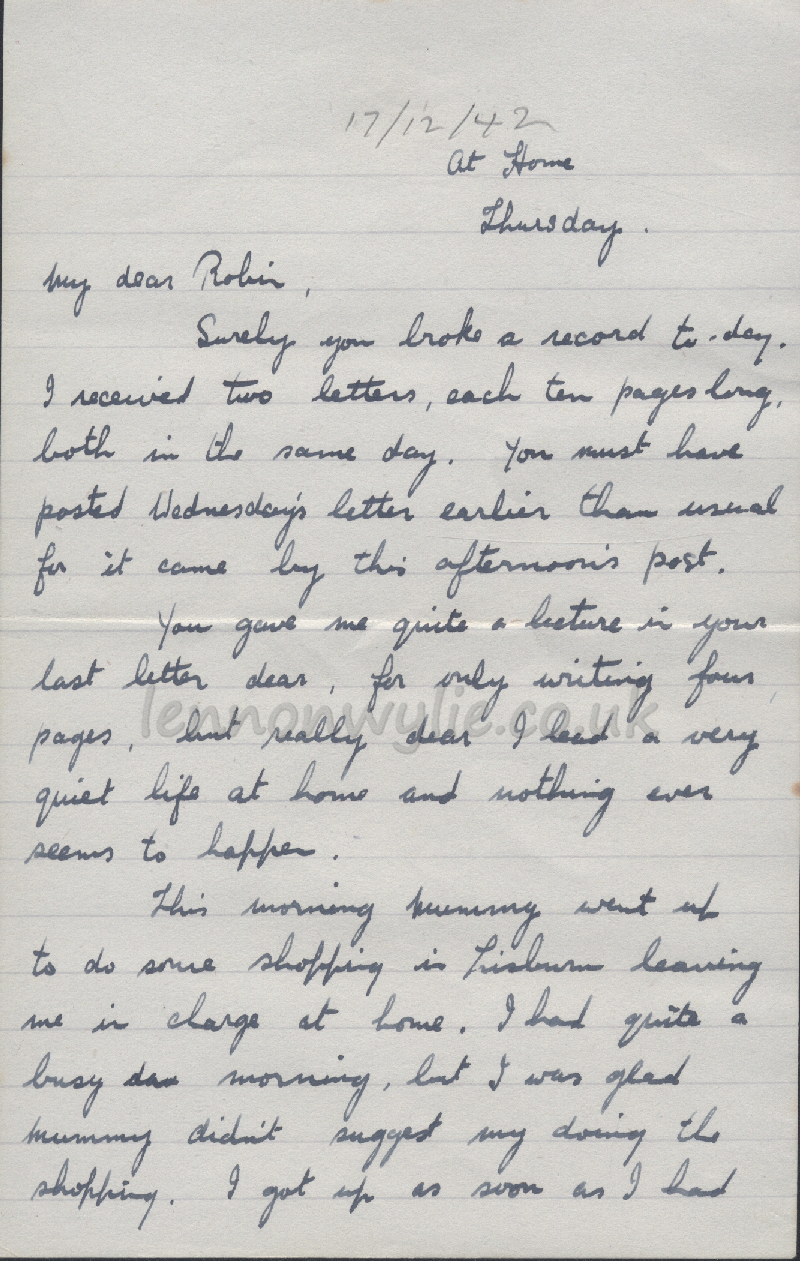 17/12/42
At Home
Thursday.
My dear Robin,
Surely you broke a record to-day.
I received two letters, each ten pages long,
both in the same day. You must have
posted Wednesday's letter earlier than usual
for it came by this afternoon's post.
You gave me quite a lecture in your
last letter dear, for only writing four
lennonwylie.co.uk
pages, but really dear I lead a very
quiet life at home and nothing ever
seems to happen.
This morning Mummy went up
to do some shopping in Lisburn leaving
me in charge at home. I had quite a
busy morning, but I was glad
Mummy didn't suggest my doing the
shopping. I got up as soon as I had